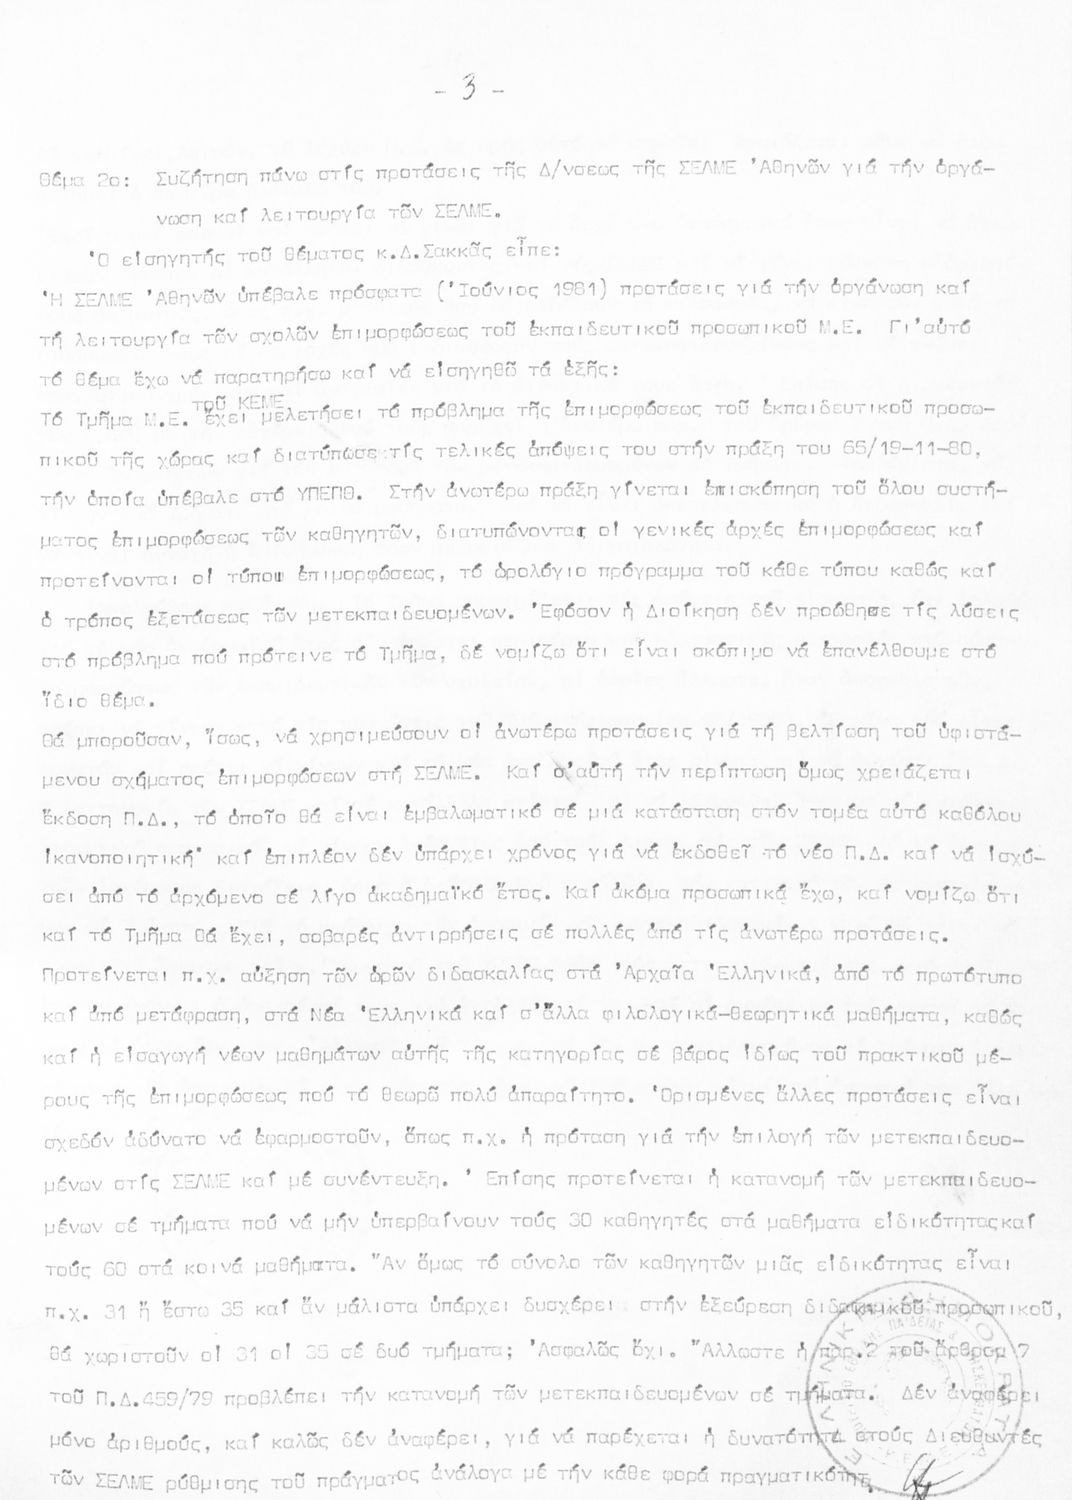 - 3 -
Θέμα 2ο: Συζήτηση πάνω στίς προτάσεις τῆς Δ/νσεως τῆς ΣΕΛΜΕ Ἀθηνῶν γιά τήν ὀργά-
νωση καί λειτουργία τῶν ΣΕΛΜΕ.
Ὁ εἰσηγητής τοῦ θέματος κ.Δ.Σακκᾶς εἶπε:
Ἡ ΣΕΛΜΕ Ἀθηνῶν ὑπέβαλε πρόσφατα (Ἰούνιος 1981) προτάσεις γιά τήν ὀργάνωση καί
τή λειτουργία τῶν σχολῶν ἐπιμορφώσεως τοῦ ἐκπαιδευτικοῦ προσωπικοῦ Μ.Ε. Γι'αὐτό
τό θέμα ἔχω νά παρατηρήσω καί νά εἰσηγηθῶ τά ἑξῆς:
τοῦ ΚΕΜΕ
Τό Τμῆμα Μ.Ε. ἔχει μελετήσει τό πρόβλημα τῆς ἐπιμορφώσεως τοῦ ἐκπαιδευτικοῦ προσω-
πικοῦ τῆς χώρας καί διατύπωσε τίς τελικές ἀπόψεις του στήν πράξη του 65/19-11-80,
τήν ὁποία ὑπέβαλε στό ΥΠΕΠΘ. Στήν ἀνωτέρω πράξη γίνεται ἐπισκόπηση τοῦ ὅλου συστή-
ματος ἐπιμορφώσεως τῶν καθηγητῶν, διατυπώνονται οἱ γενικές ἀρχές ἐπιμορφώσεως καί
προτείνονται οἱ τύποι ἐπιμορφώσεως, τό ὡρολόγιο πρόγραμμα τοῦ κάθε τύπου καθώς καί
ὁ τρόπος ἐξετάσεως τῶν μετεκπαιδευομένων. Ἐφόσον ἡ Διοίκηση δέν προώθησε τίς λύσεις
στό πρόβλημα πού πρότεινε τό Τμῆμα, δέ νομίζω ὅτι εἶναι σκόπιμο νά ἐπανέλθουμε στό
ἴδιο θέμα.
Θά μποροῦσαν, ἴσως, νά χρησιμεύσουν οἱ ἀνωτέρω προτάσεις γιά τή βελτίωση τοῦ ὑφιστά-
μενου σχήματος ἐπιμορφώσεων στή ΣΕΛΜΕ. Καί σ'αὐτή τήν περίπτωση ὅμως χρειάζεται
ἔκδοση Π.Δ., τό ὁποῖο θά εἶναι ἐμβαλωματικό σέ μιά κατάσταση στόν τομέα αὐτό καθόλου
ἱκανοποιητική· καί ἐπιπλέον δέν ὑπάρχει χρόνος γιά νά ἐκδοθεῖ τό νέο Π.Δ. καί νά ἰσχύ-
σει ἀπό τό ἀρχόμενο σέ λίγο ἀκαδημαϊκό ἔτος. Καί ἀκόμα προσωπικά ἔχω, καί νομίζω ὅτι
καί τό Τμῆμα θά ἔχει, σοβαρές ἀντιρρήσεις σέ πολλές ἀπό τίς ἀνωτέρω προτάσεις.
Προτείνεται π.χ. αὔξηση τῶν ὡρῶν διδασκαλίας στά Ἀρχαῖα Ἑλληνικά, ἀπό τό πρωτότυπο
καί ἀπό μετάφραση, στά Νέα Ἑλληνικά καί σ'ἄλλα φιλολογικά-θεωρητικά μαθήματα, καθώς
καί ἡ εἰσαγωγή νέων μαθημάτων αὐτῆς τῆς κατηγορίας σέ βάρος ἰδίως τοῦ πρακτικοῦ μέ-
ρους τῆς ἐπιμορφώσεως πού τό θεωρῶ πολύ ἀπαραίτητο. Ὁρισμένες ἄλλες προτάσεις εἶναι
σχεδόν ἀδύνατο νά ἐφαρμοστοῦν, ὅπως π.χ. ἡ πρόταση γιά τήν ἐπιλογή τῶν μετεκπαιδευο-
μένων στίς ΣΕΛΜΕ καί μέ συνέντευξη. Ἐπίσης προτείνεται ἡ κατανομή τῶν μετεκπαιδευο-
μένων σέ τμήματα πού νά μήν ὑπερβαίνουν τούς 30 καθηγητές στά μαθήματα εἰδικότητας καί
τούς 60 στά κοινά μαθήματα. Ἄν ὅμως τό σύνολο τῶν καθηγητῶν μιᾶς εἰδικότητας εἶναι
π.χ. 31 ἤ ἔστω 35 καί ἄν μάλιστα ὑπάρχει δυσχέρει στήν ἐξεύρεση διδακτικοῦ προσωπικοῦ,
θά χωριστοῦν οἱ 31 οἱ 35 σέ δυό τμήματα; Ἀσφαλῶς ὄχι. Ἄλλωστε ἡ παρ.2 τοῦ ἄρθρου 7
τοῦ Π.Δ.459/79 προβλέπει τήν κατανομή τῶν μετεκπαιδευομένων σέ τμήματα. Δέν ἀναφέρει
μόνο ἀριθμούς, καί καλῶς δέν ἀναφέρει, γιά νά παρέχεται ἡ δυνατότητα στούς Διευθυντές
τῶν ΣΕΛΜΕ ρύθμισης τοῦ πράγματος ἀνάλογα μέ τήν κάθε φορά πραγματικότητ.